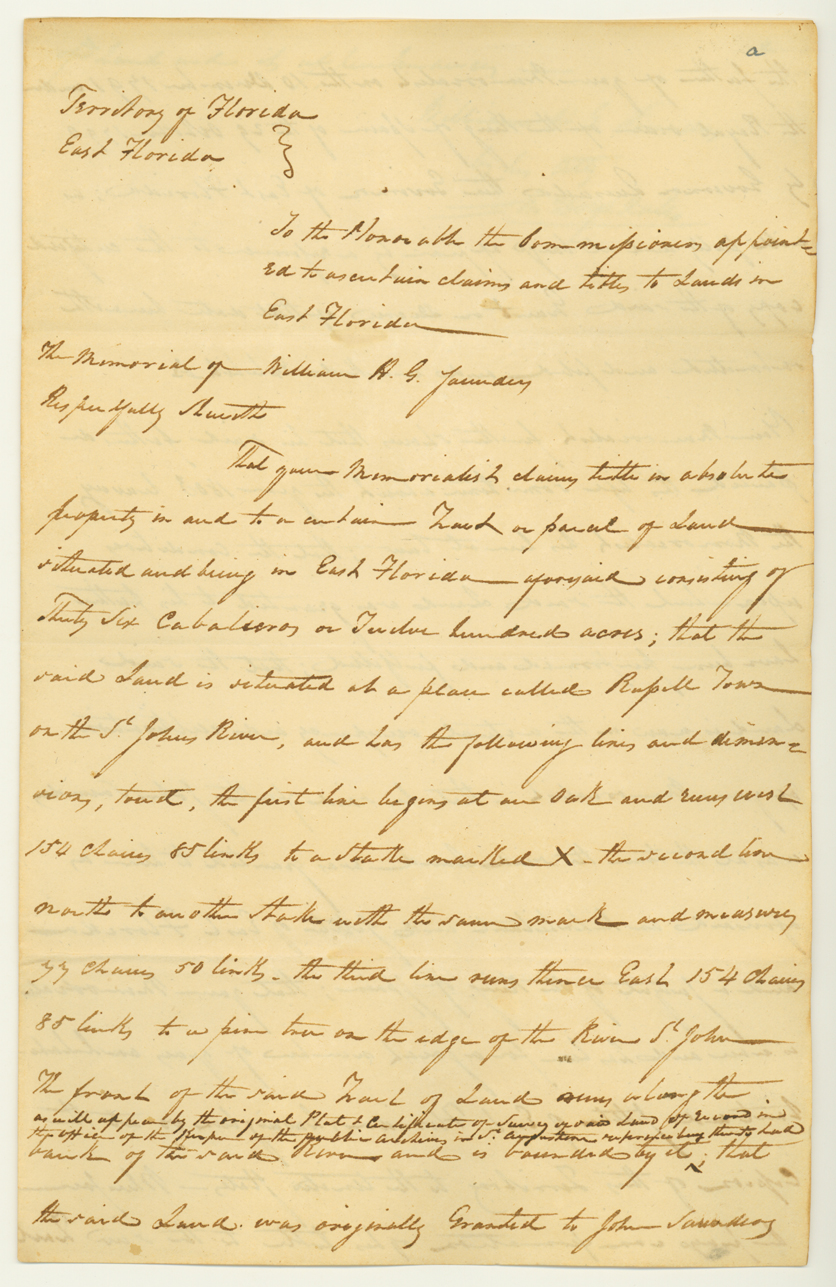 a
Territory of Florida
East Florida }
To the Honorable the Commissioners appoint=
ed to ascertain claims and titles to Lands in
East Florida
The Memorial of William H. G. Saunders
Respectfully Sheweth
That your Memorialist claims title in absolute
property in and to a certain Tract or parcel of Land
situated and being in East Florida aforesaid consisting of
Thirty Six Cabalieros or Twelve hundred acres; that the
said Land is situated at a place called Russell Town
on the St Johns River, and has the following lines and dimen=
sions, towit, the first line begins at an Oak and runs west
154 chains 85 links to a Stake marked X - the second line
north to another Stake with the same mark and measures
77 chains 50 links - the third line runs thence East 154 chains
85 links to a pine tree on the edge of the River St John
The front of the said Tract of Land runs along the
as will appear by the original Plat & Certificate of Survey of said Land of Record in
the office of the Keeper of the public archives in St Augustine reference being thereto had
bank of the said River and is bounded by it ^; that
the said Land was originally Granted to John Saunders